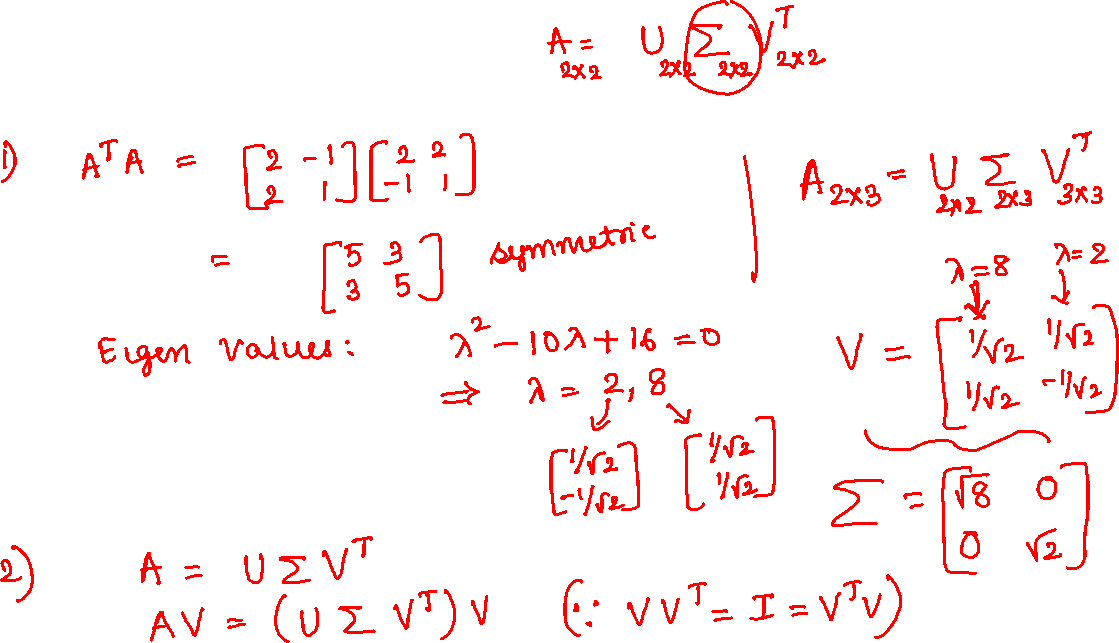 A = U Σ V^T
2×2 2×2 2×2 2×2
1) A^T A = [2 -1; 2 1] [2 2; -1 1]
= [5 3; 3 5] symmetric
Eigen Values: λ² - 10λ + 16 = 0
⇒ λ = 2, 8
[1/√2; -1/√2] [1/√2; 1/√2]
A 2×3 = U Σ V^T
2×2 2×3 3×3
λ=8 λ=2
V = [1/√2 1/√2; 1/√2 -1/√2]
Σ = [√8 0; 0 √2]
2) A = U Σ V^T
AV = (U Σ V^T) V (∵ V V^T = I = V^T V)